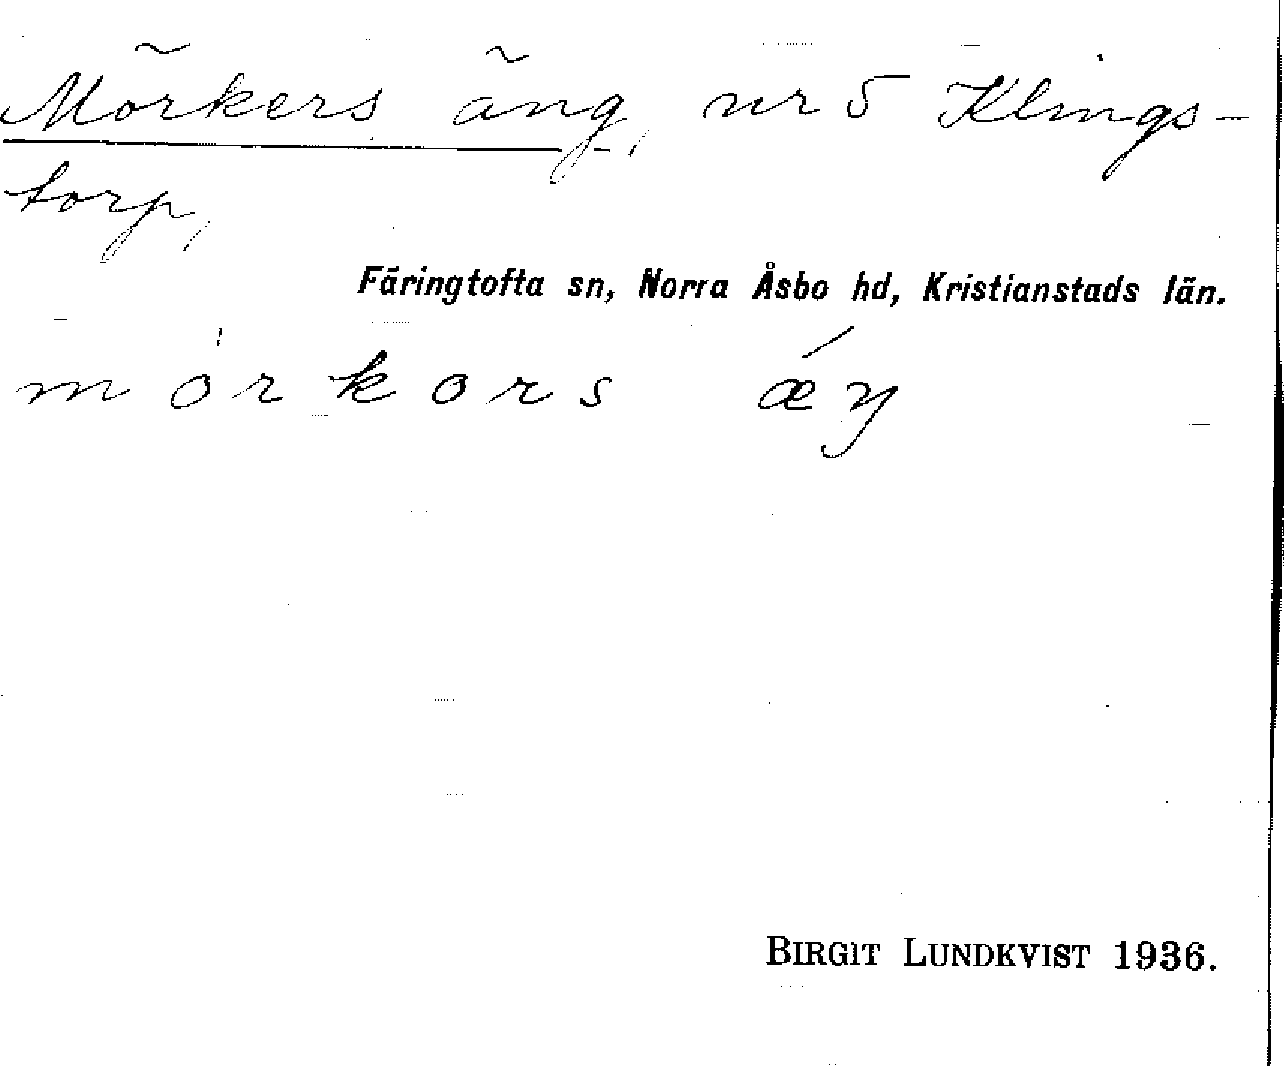 Mörkers äng, nr 5 Klings-
torp,
Färingtofta sn, Norra Åsbo hd, Kristianstads län.
mȯrkors ǽŋ
BIRGIT LUNDKVIST 1936.